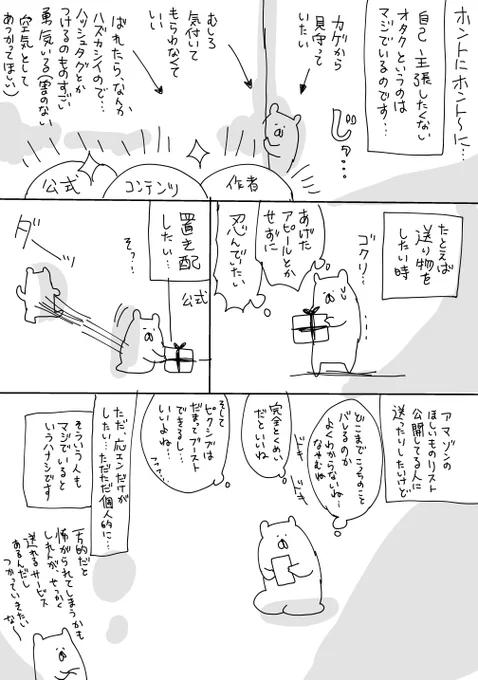 ホントにホント〜に…
自己主張したくない
オタクというのは
マジでいるのです…
カゲから
見守って
いたい
むしろ
気付いて
もらわなくて
いい
ばれたら、なんか
ハズカシイので…
ハッシュタグとか
つけるのものすごい
勇気いる(害のない
空気として
あつかってほしい)
じっ…
作者
コンテンツ
公式
たとえば
送り物を
したい時
ゴクリ…
あげた
アピールとか
せずに
忍んでいたい
置き配
したい…
公式
そ?…
ダーッ
アマゾンの
ほしいものリスト
公開してる人に
送ったりしたいけど
どこまでこっちのこと
バレるのか
よくわからないね…
なやむね
ドキ
ドキ
完全とくめい
だといいね
そして
ピクシブは
だまってブースト
できるし…
いいよね…
フゥ…
ただ、応エンだけが
したい…ただただ個人的に…
そういう人も
マジでいると
いうハナシです
一方的だと
怖がられてしまうかも
しれんが、せっかく
送れるサービス
あるんだし
つかっていきたい
な〜